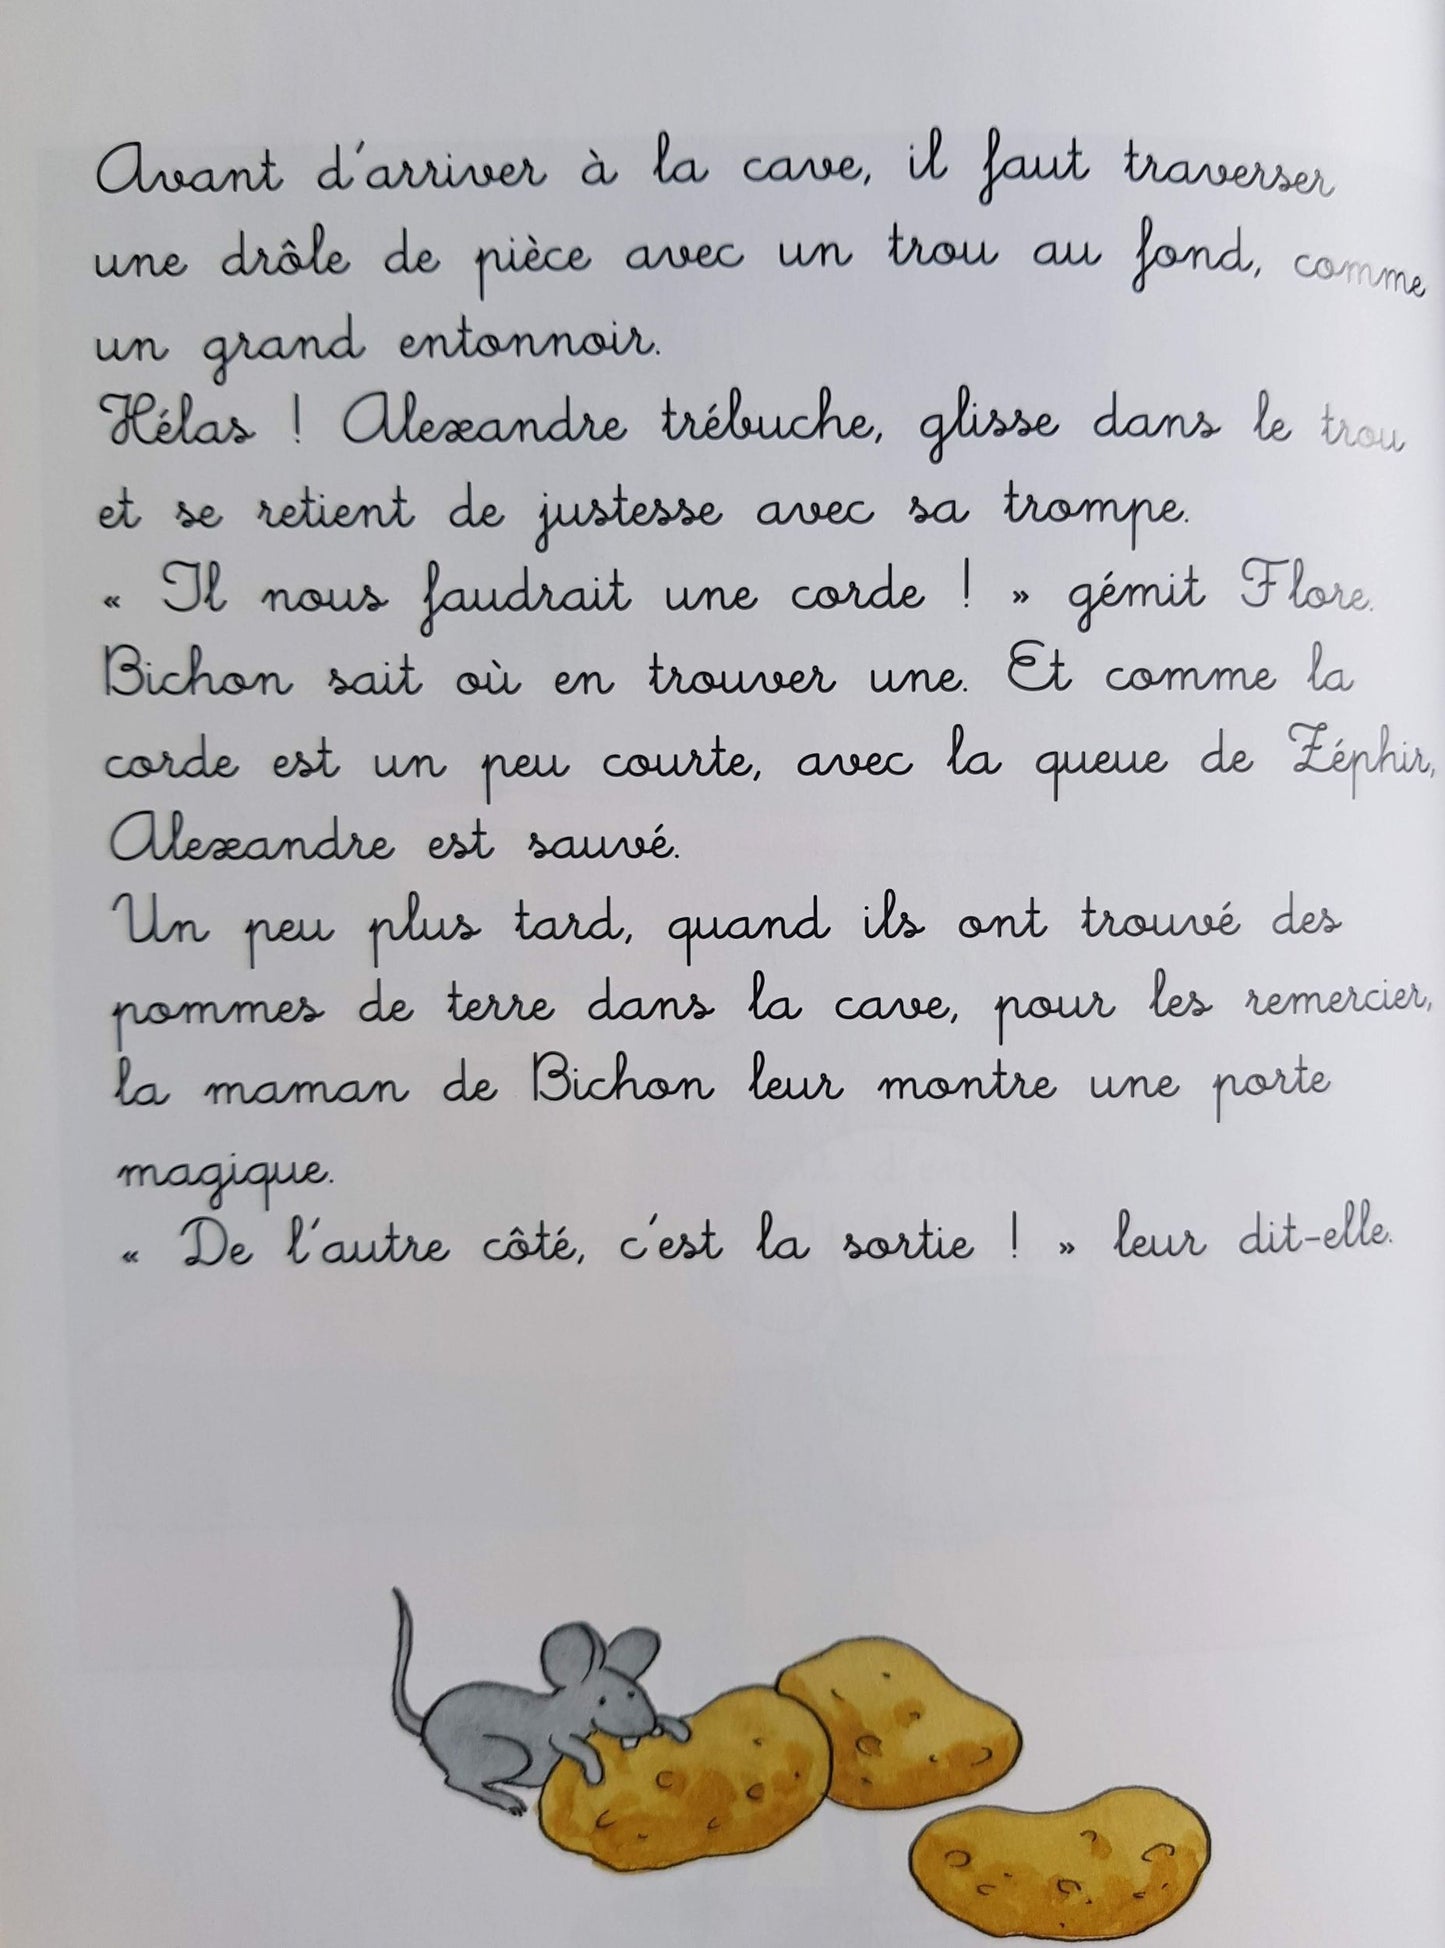 Avant d'arriver à la cave, il faut traverser
une drôle de pièce avec un trou au fond, comme
un grand entonnoir.
Hélas ! Alexandre trébuche, glisse dans le trou
et se retient de justesse avec sa trompe.
« Il nous faudrait une corde ! » gémit Flore.
Bichon sait où en trouver une. Et comme la
corde est un peu courte, avec la queue de Zéphir,
Alexandre est sauvé.
Un peu plus tard, quand ils ont trouvé des
pommes de terre dans la cave, pour les remercier,
la maman de Bichon leur montre une porte
magique.
« De l'autre côté, c'est la sortie ! » leur dit-elle.